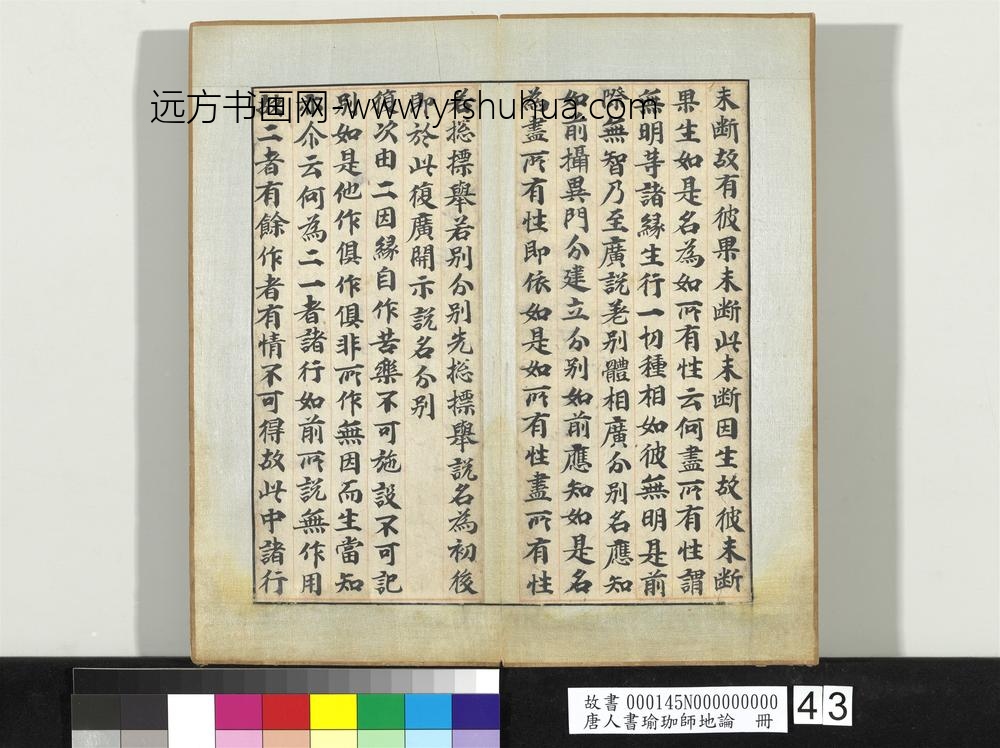 未断故有彼果未断此未断因生故彼未断
果生如是名為如所有性云何盡所有性謂
無明等諸緣生行一切種相如彼無明是前
際無智乃至廣說差別體相廣分別名應知
如前攝異門分建立分別如前應知如是名
為盡所有性即依如是如所有性盡所有性
總標舉若別分別先總標舉說名為初後
即於此復廣開示說名分別
復次由二因緣自作苦樂不可施設不可記
別如是他作俱作俱非所作無因而生當知
亦尒云何為二一者諸行如前所說無作用
故二者有餘作者有情不可得故此中諸行
远方书画网-www.yfshuhua.com
故書 000145N000000000
唐人書瑜珈師地論 冊
43